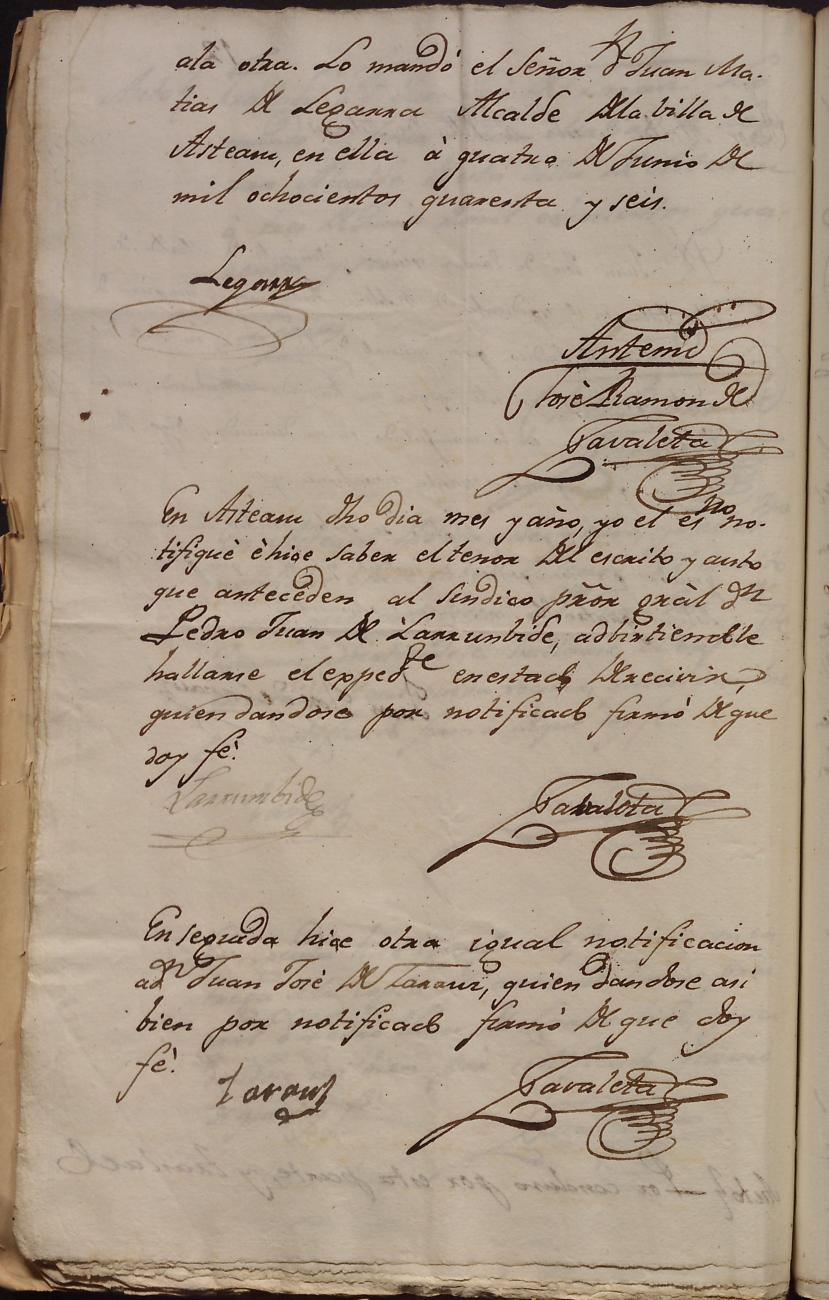 ala otra. Lo mandó el Señor Dn Juan Ma-
tias de Legarra Alcalde dela villa de
Asteasu, en ella à quatro de Junio de
mil ochocientos quarenta y seis.
Legarra
Antemi
José Ramon de
Zavaleta
En Asteasu dho dia mes y año, yo el esno no-
tifiquè è hice saber el tenor del escrito y auto
que anteceden al sindico prōr grāl dn
Pedro Juan de Larrunbide, adbirtiendole
hallarse el expedte enestado derecivir,
quien dandose por notificado firmò de que
doy fè.
Larrumbide
Zavaleta
En seguida hice otra igual notificacion
adn Juan José de Zarauz, quien dandose asi
bien por notificado firmò de que doy
fè.
Zarauz
Zavaleta